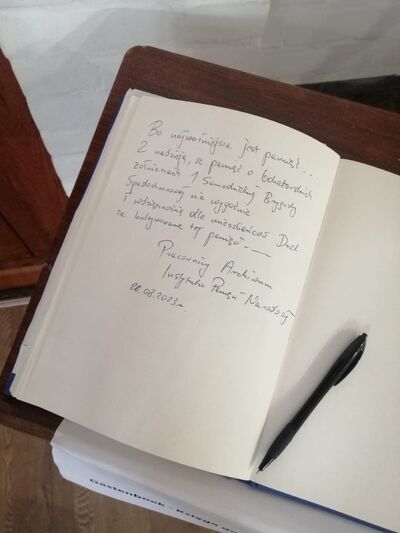 Bo najważniejsza jest pamięć...
Z nadzieją, że pamięć o bohaterskich
żołnierzach 1 Samodzielnej Brygady
Spadochronowej nie wygaśnie
i wdzięcznością dla mieszkańców Driel
za kultywowanie tej pamięci
Pracownicy Archiwum
Instytutu Pamięci Narodowej
22.08.2023r.
Gastenboek - Księga go